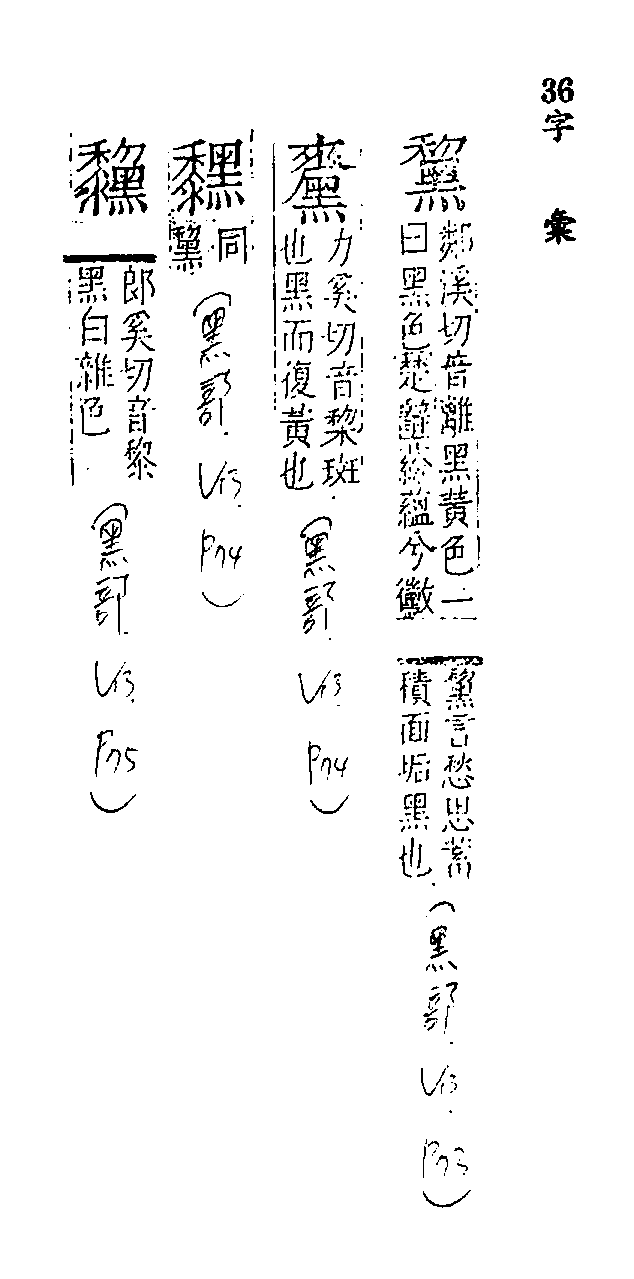 36
字彙
黧
鄰溪切音離黑黃色一
曰黑色楚辭紛蘊兮黴
黧言愁思蓄
積面垢黑也
(黑部. V13. P73)
力奚切音黎斑
也黑而復黃也
(黑部. V13. P74)
同
黧
(黑部. V13. P74)
郎奚切音黎
黑白雜色
(黑部. V13. P75)